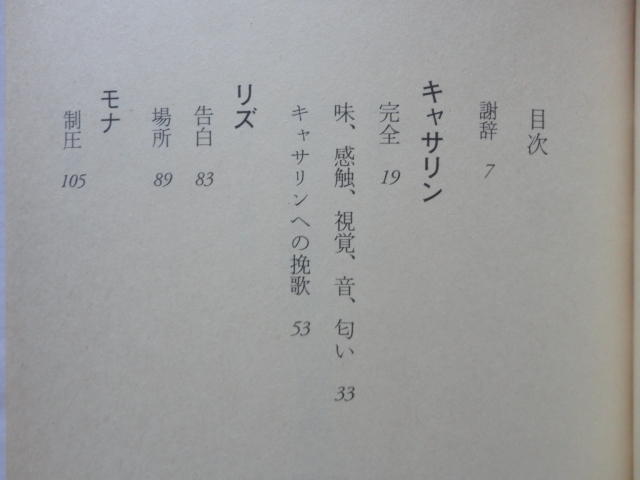 目次
謝辞 7
キャサリン
完全 19
味、感触、視覚、音、匂い 33
キャサリンへの挽歌 53
リズ
告白 83
場所 89
モナ
制圧 105